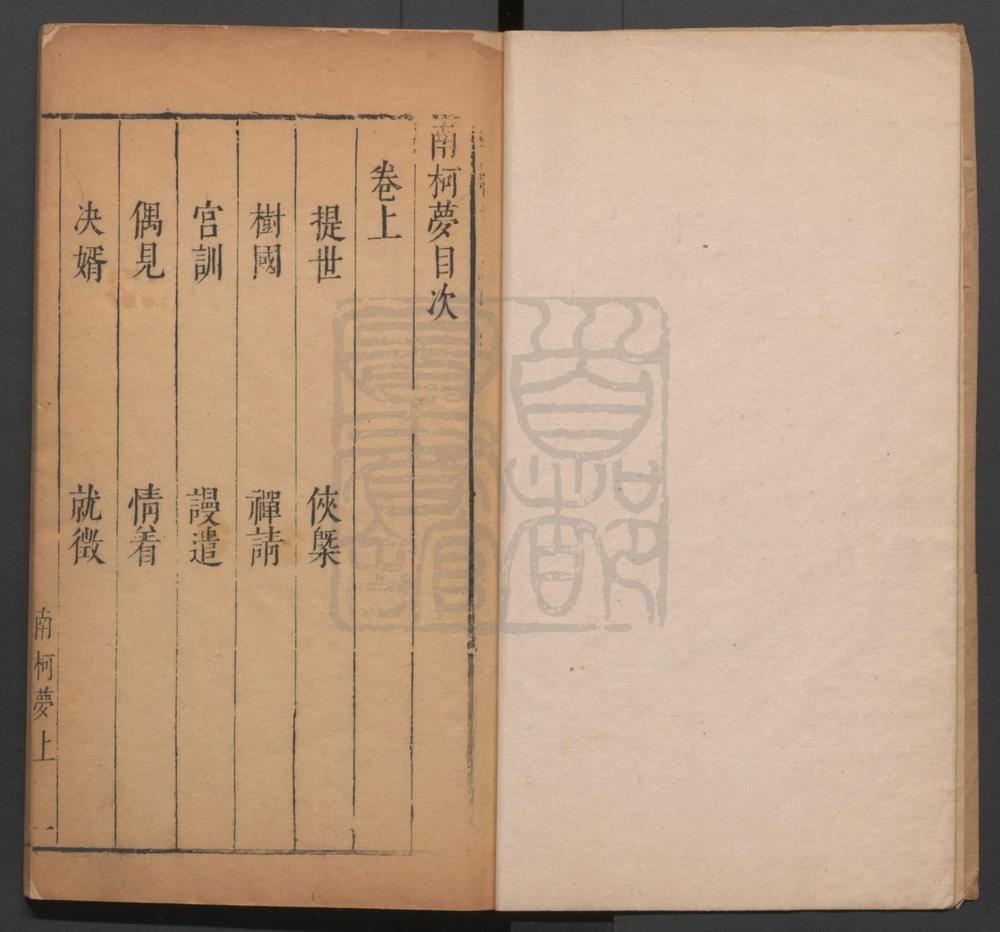 南柯夢目次
卷上
提世　俠槩
樹國　禪請
宮訓　謾遣
偶見　情着
决婿　就徵
南柯夢上　一